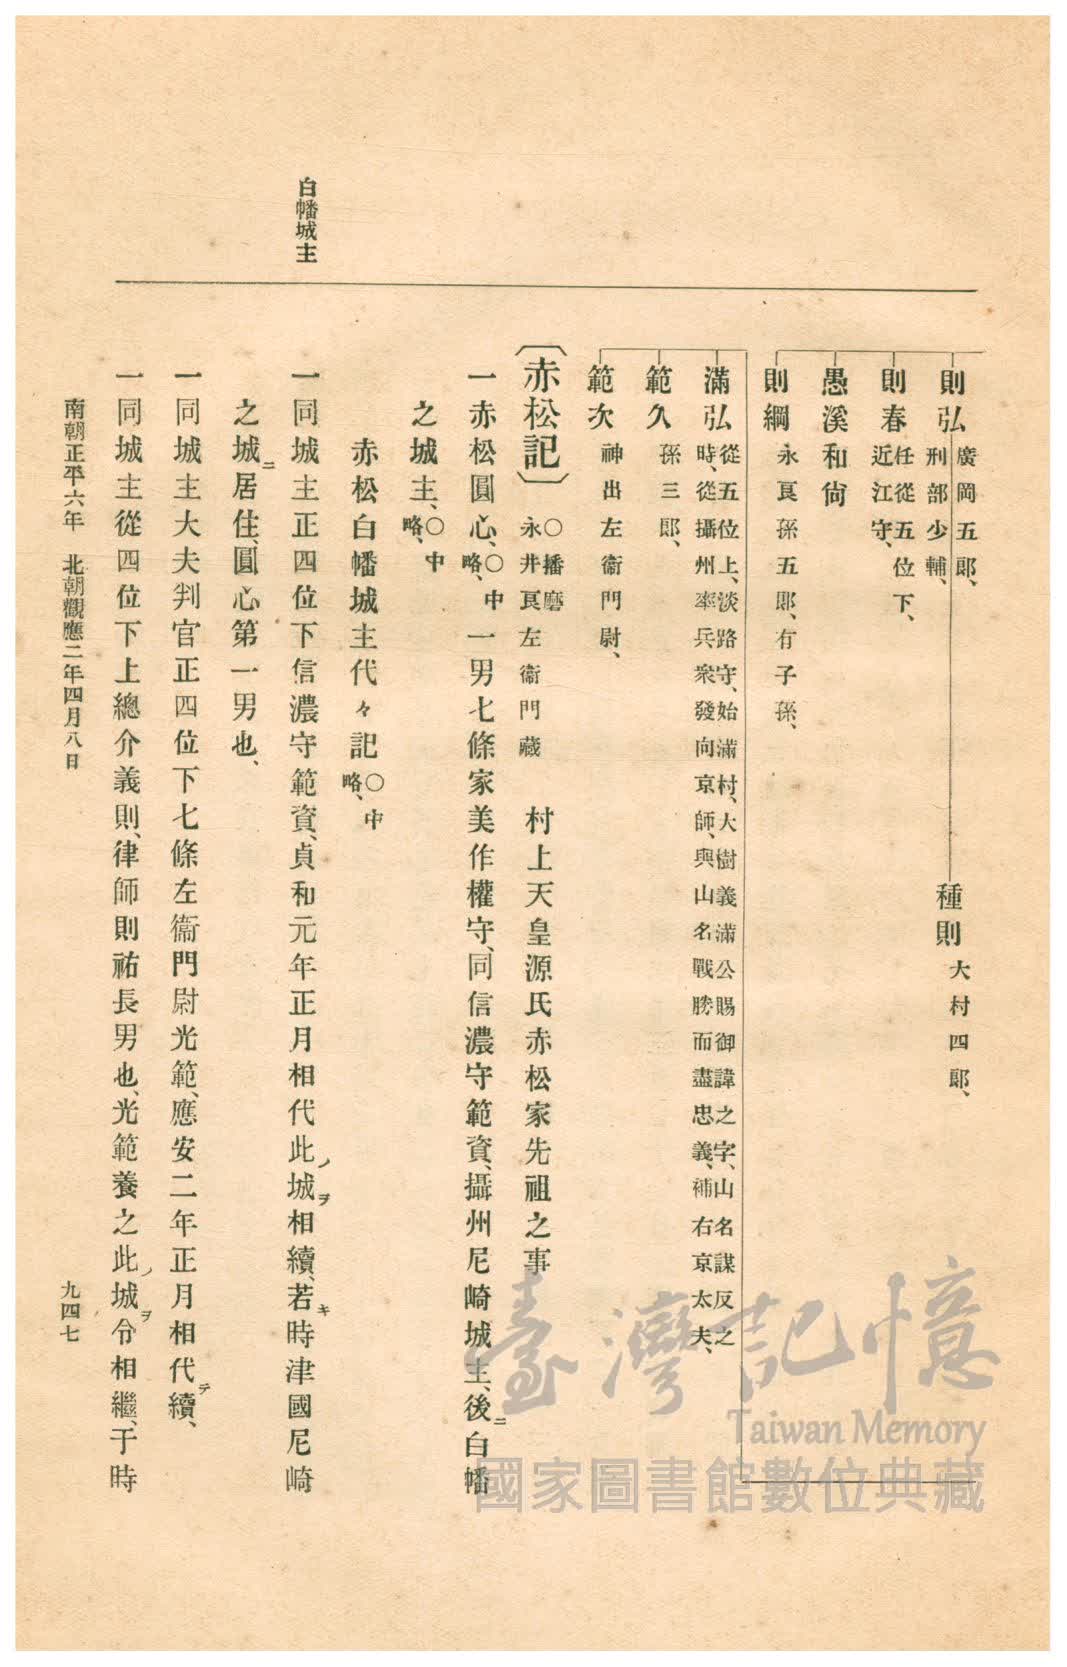 白幡城主
則弘 廣岡五郎、刑部少輔、
種則 大村四郎、
則春 任從五位下、近江守、
愚溪和尙
則綱 永良孫五郎、有子孫、
滿弘 從五位上、淡路守、始滿村、大樹義滿公賜御諱之字、山名謀反之
時、從攝州率兵衆發向京師、與山名戰勝而盡忠義、補右京太夫、
範久 孫三郎、
範次 神出左衞門尉、
〔赤松記〕 ○播磨永井良左衞門藏 村上天皇源氏赤松家先祖之事
一赤松圓心、○中略、一男七條家美作權守、同信濃守範資、攝州尼崎城主、後ニ白幡
之城主、○中略、
赤松白幡城主代々記○中略、
一同城主正四位下信濃守範資、貞和元年正月相代此ノ城ヲ相續、若キ時津國尼崎
之城ニ居住、圓心第一男也、
一同城主大夫判官正四位下七條左衞門尉光範、應安二年正月相代テ續、
一同城主從四位下上總介義則、律師則祐長男也、光範養之此ノ城ヲ令相繼、于時
南朝正平六年 北朝觀應二年四月八日
九四七
臺灣記憶
Taiwan Memory
國家圖書館數位典藏